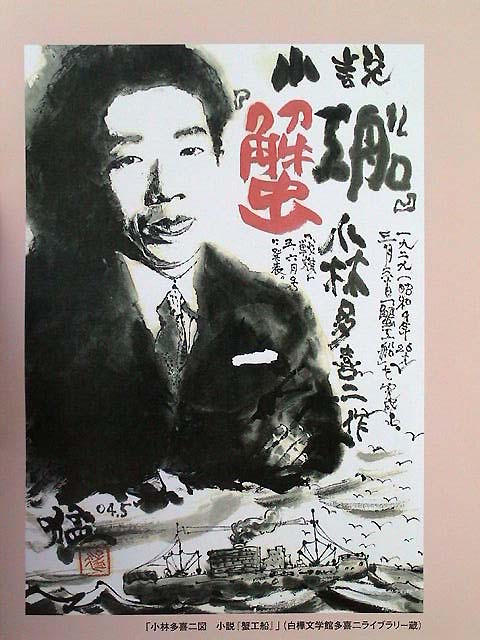 小説
『蟹工船』
小林多喜二作
一九二九(昭和4年26才)
三月三十日「蟹工船」を完成し、
『戦旗』に
五、六月号
に発表。
04.5
猛
「小林多喜二図　小説『蟹工船』」(白樺文学館多喜二ライブラリー蔵)